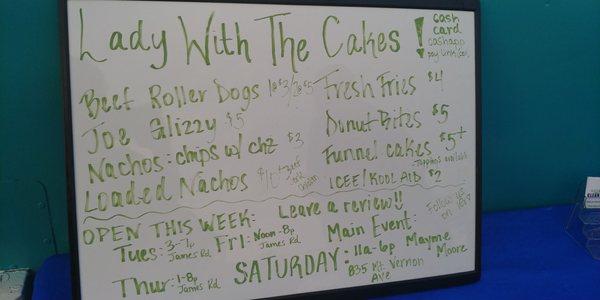 Lady With The Cakes
! cash
card
cashapp
pay link
Beef Roller Dogs 1@$3/2@$5
Joe Glizzy $5
Nachos: chips w/ chz $3
Loaded Nachos
Fresh Fries $4
Donut Bites $5
Funnel cakes $5+
toppings available
ICEE/KOOL AID $2
OPEN THIS WEEK:
Tues: 3-7p
James Rd
Fri: Noon-8p
James Rd
Thur: 1-8p
James Rd
Leave a review!!
Follow us
on
Main Event:
SATURDAY: 11a-6p Mayme
Moore
835 Mt. Vernon
Ave